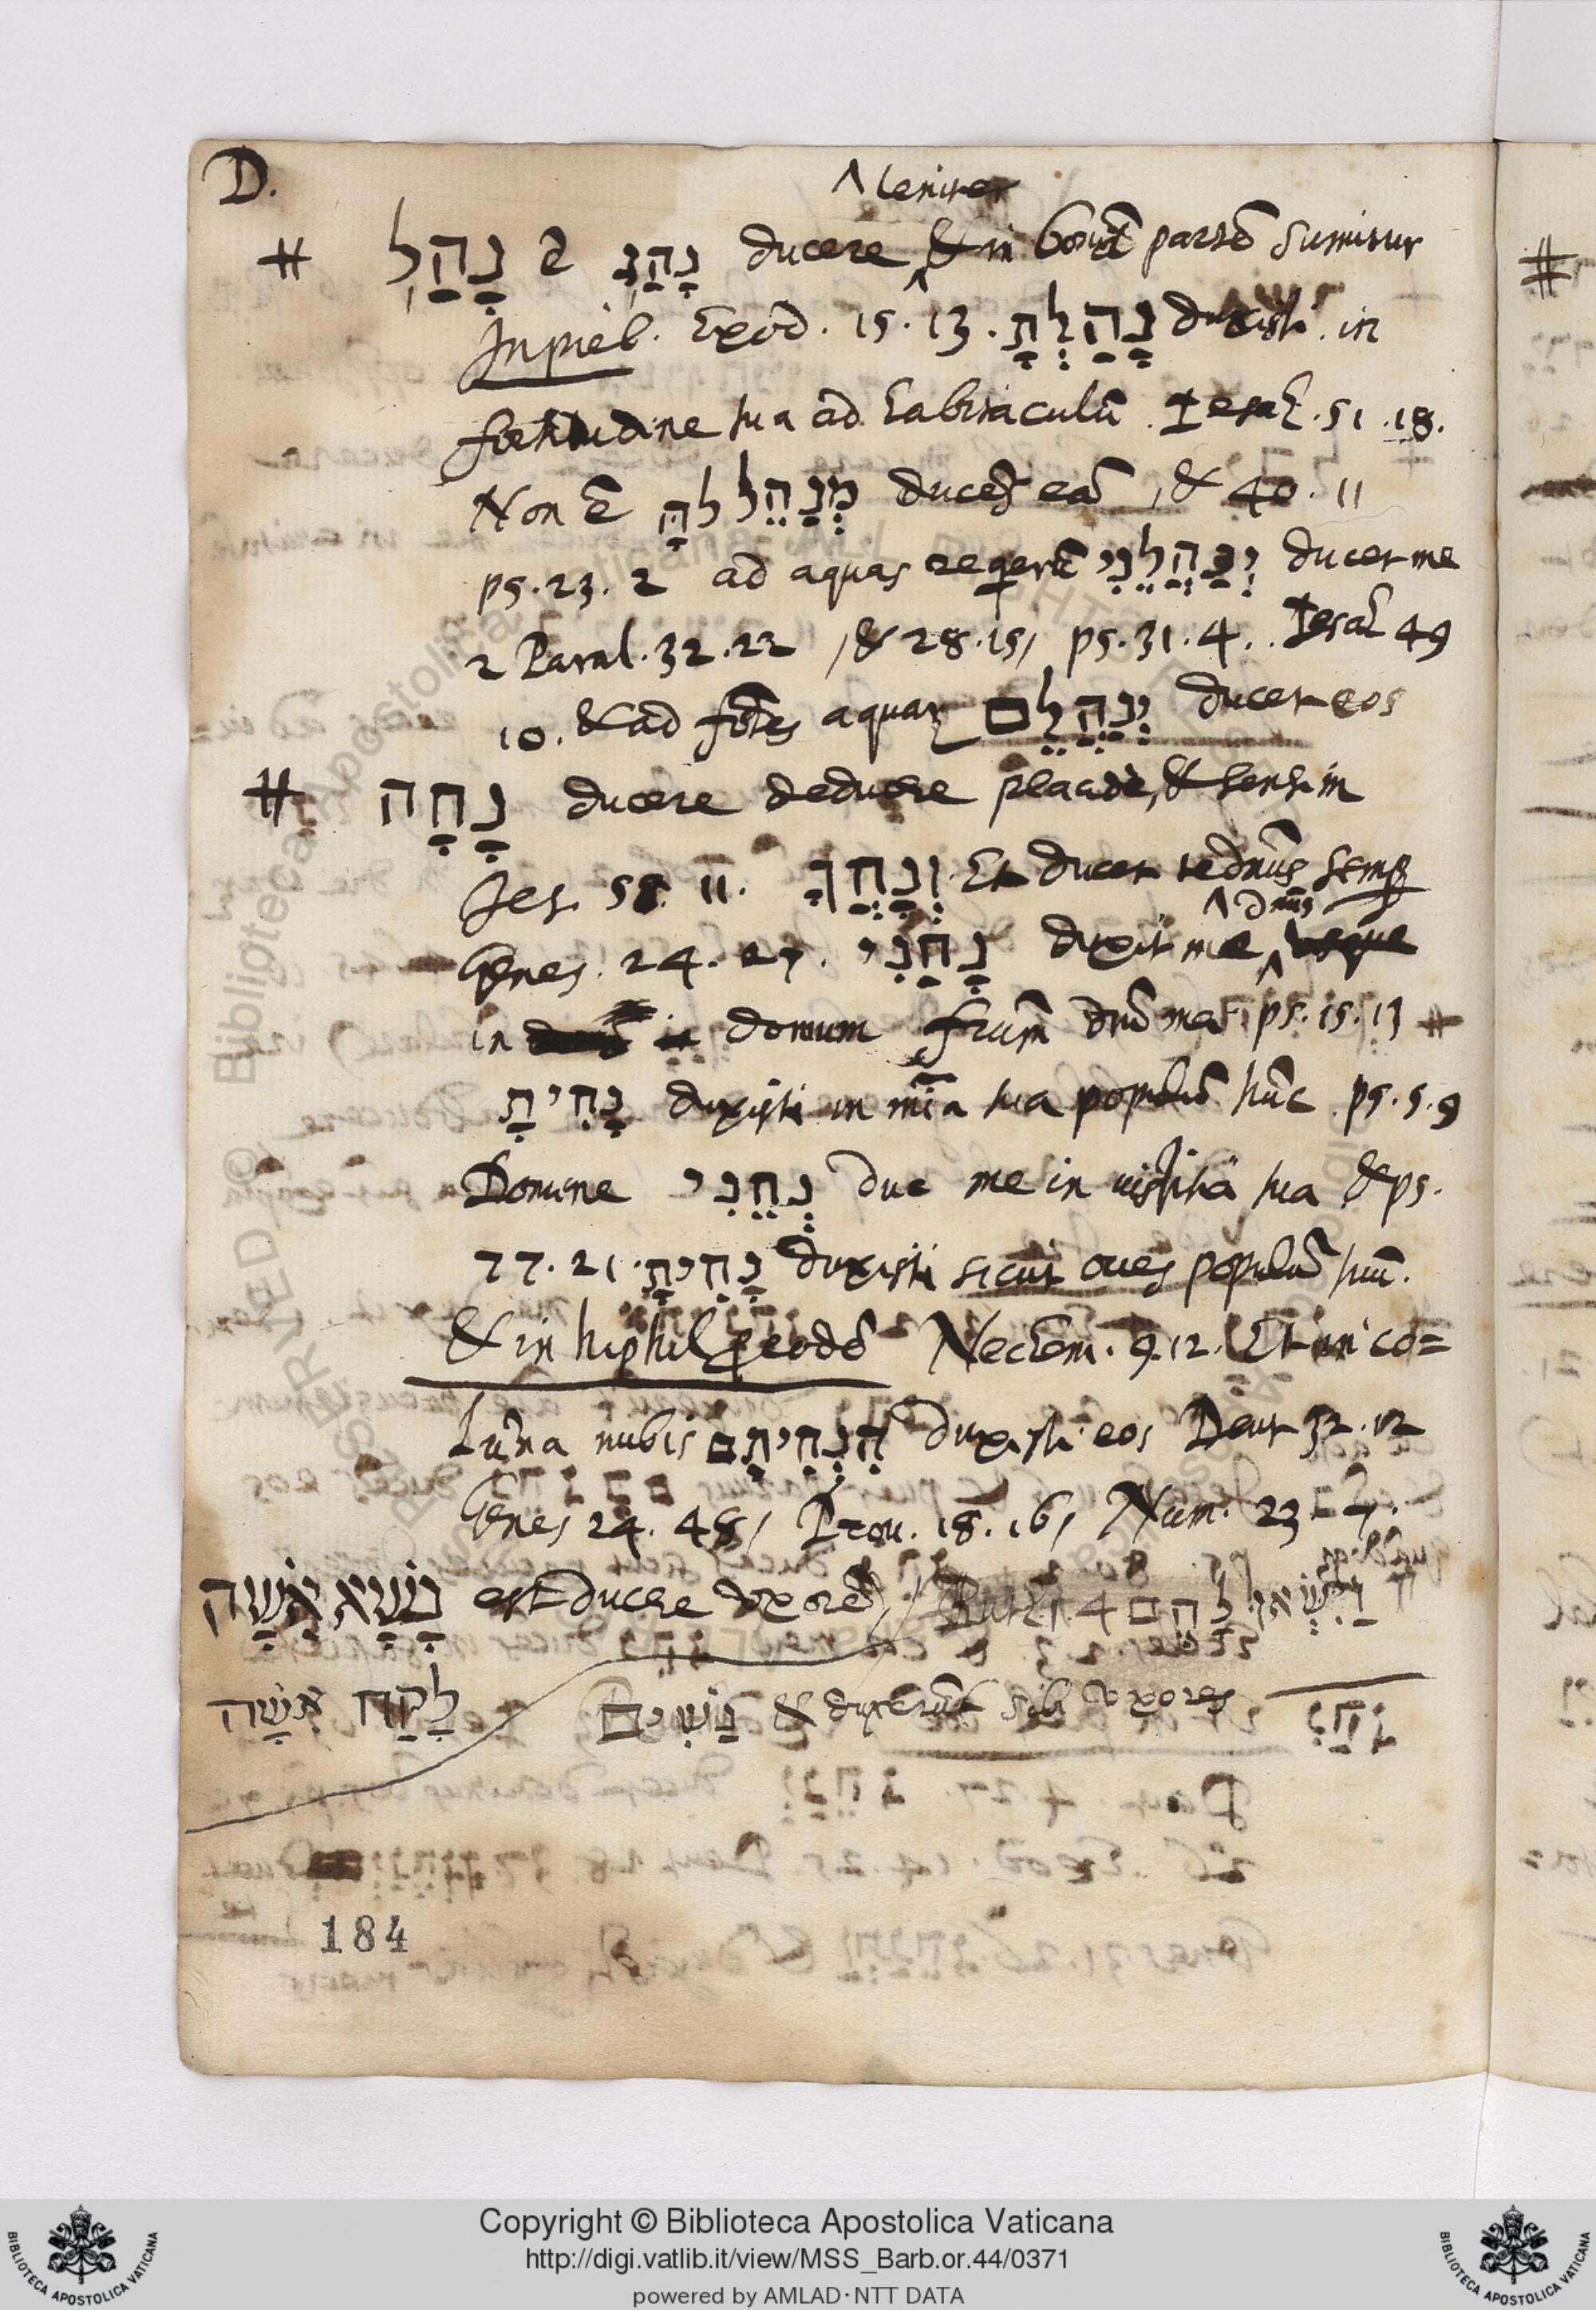 D.
^ leniter
# נָהַל פ נָהַג ducere & in bonā partē sumitur
In piel. Exod. 15. 13. נָהַלְתָּ duxisti in
fortitudine tua ad habitaculū. Iesaȝ. 51. 18.
Non ē מְנַהֵל לָהּ ducēs eā, & 40. 11
ps. 23. 2 ad aquas יְנַהֲלֵנִי ducet me
2 Paral. 32. 22, & 28. 15, ps. 31. 4. Iesaȝ 49
10. & ad fōtes aquaꝝ יְנַהֲלֵם ducet eos
# נָחָה ducere deducere placide, & sensim
Jes. 58. 11. וְנָחֲךָ Et ducet te dnūs semꝑ
^ dnūs
Genes. 24. 27. נָחַנִי duxit me
in domum frum dnī mei ps. 15. 13 #
נָחִיתָ duxisti in mīa tua populū hūc ps. 5. 9
Domine נְחֵנִי duc me in iustitiā tua & ps.
77. 21. נָחִיתָ duxisti sicut oues populū tuū.
& in hiphil eodē Nechem. 9. 12. Et in co=
lūna nubis הִנְחִיתָם duxisti eos Deut 32. 12
Genes 24. 48, Prou. 18. 16, Num. 23. 7.
נָשָׂא אִשָּׁה est ducere uxorē, Ruth 1 4 וַיִּשְׂאוּ לָהֶם
לָקַח אִשָּׁה נָשִׁים & duxerūt sibi uxores
נָהַג
184
Copyright © Biblioteca Apostolica Vaticana
http://digi.vatlib.it/view/MSS_Barb.or.44/0371
powered by AMLAD·NTT DATA
BIBLIOTECA APOSTOLICA VATICANA
BIBLIOTECA APOSTOLICA VATICANA